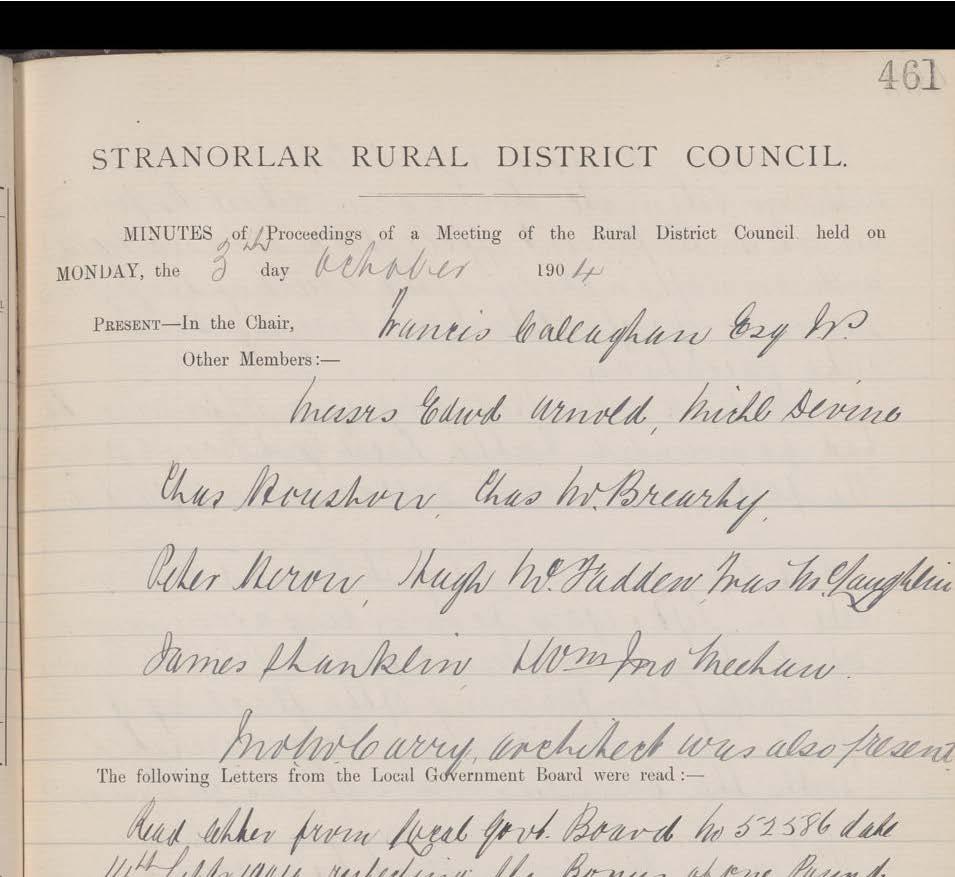 461
STRANORLAR RURAL DISTRICT COUNCIL.
MINUTES of Proceedings of a Meeting of the Rural District Council held on
MONDAY, the 3rd day October 1904
PRESENT—In the Chair, Francis Callaghan Esq JP.
Other Members:—
Messrs Edwd Arnold, Michl Devine
Chas Houston, Chas McBrearty,
Peter Heron, Hugh McFadden, Fras McLaughlin
James Shanklin, Wm Jno Meehan.
Jno McCarry, architect was also present
The following Letters from the Local Government Board were read:—
Read letter from Local Govt. Board No 52586 date
respecting the Bonus of one Pound